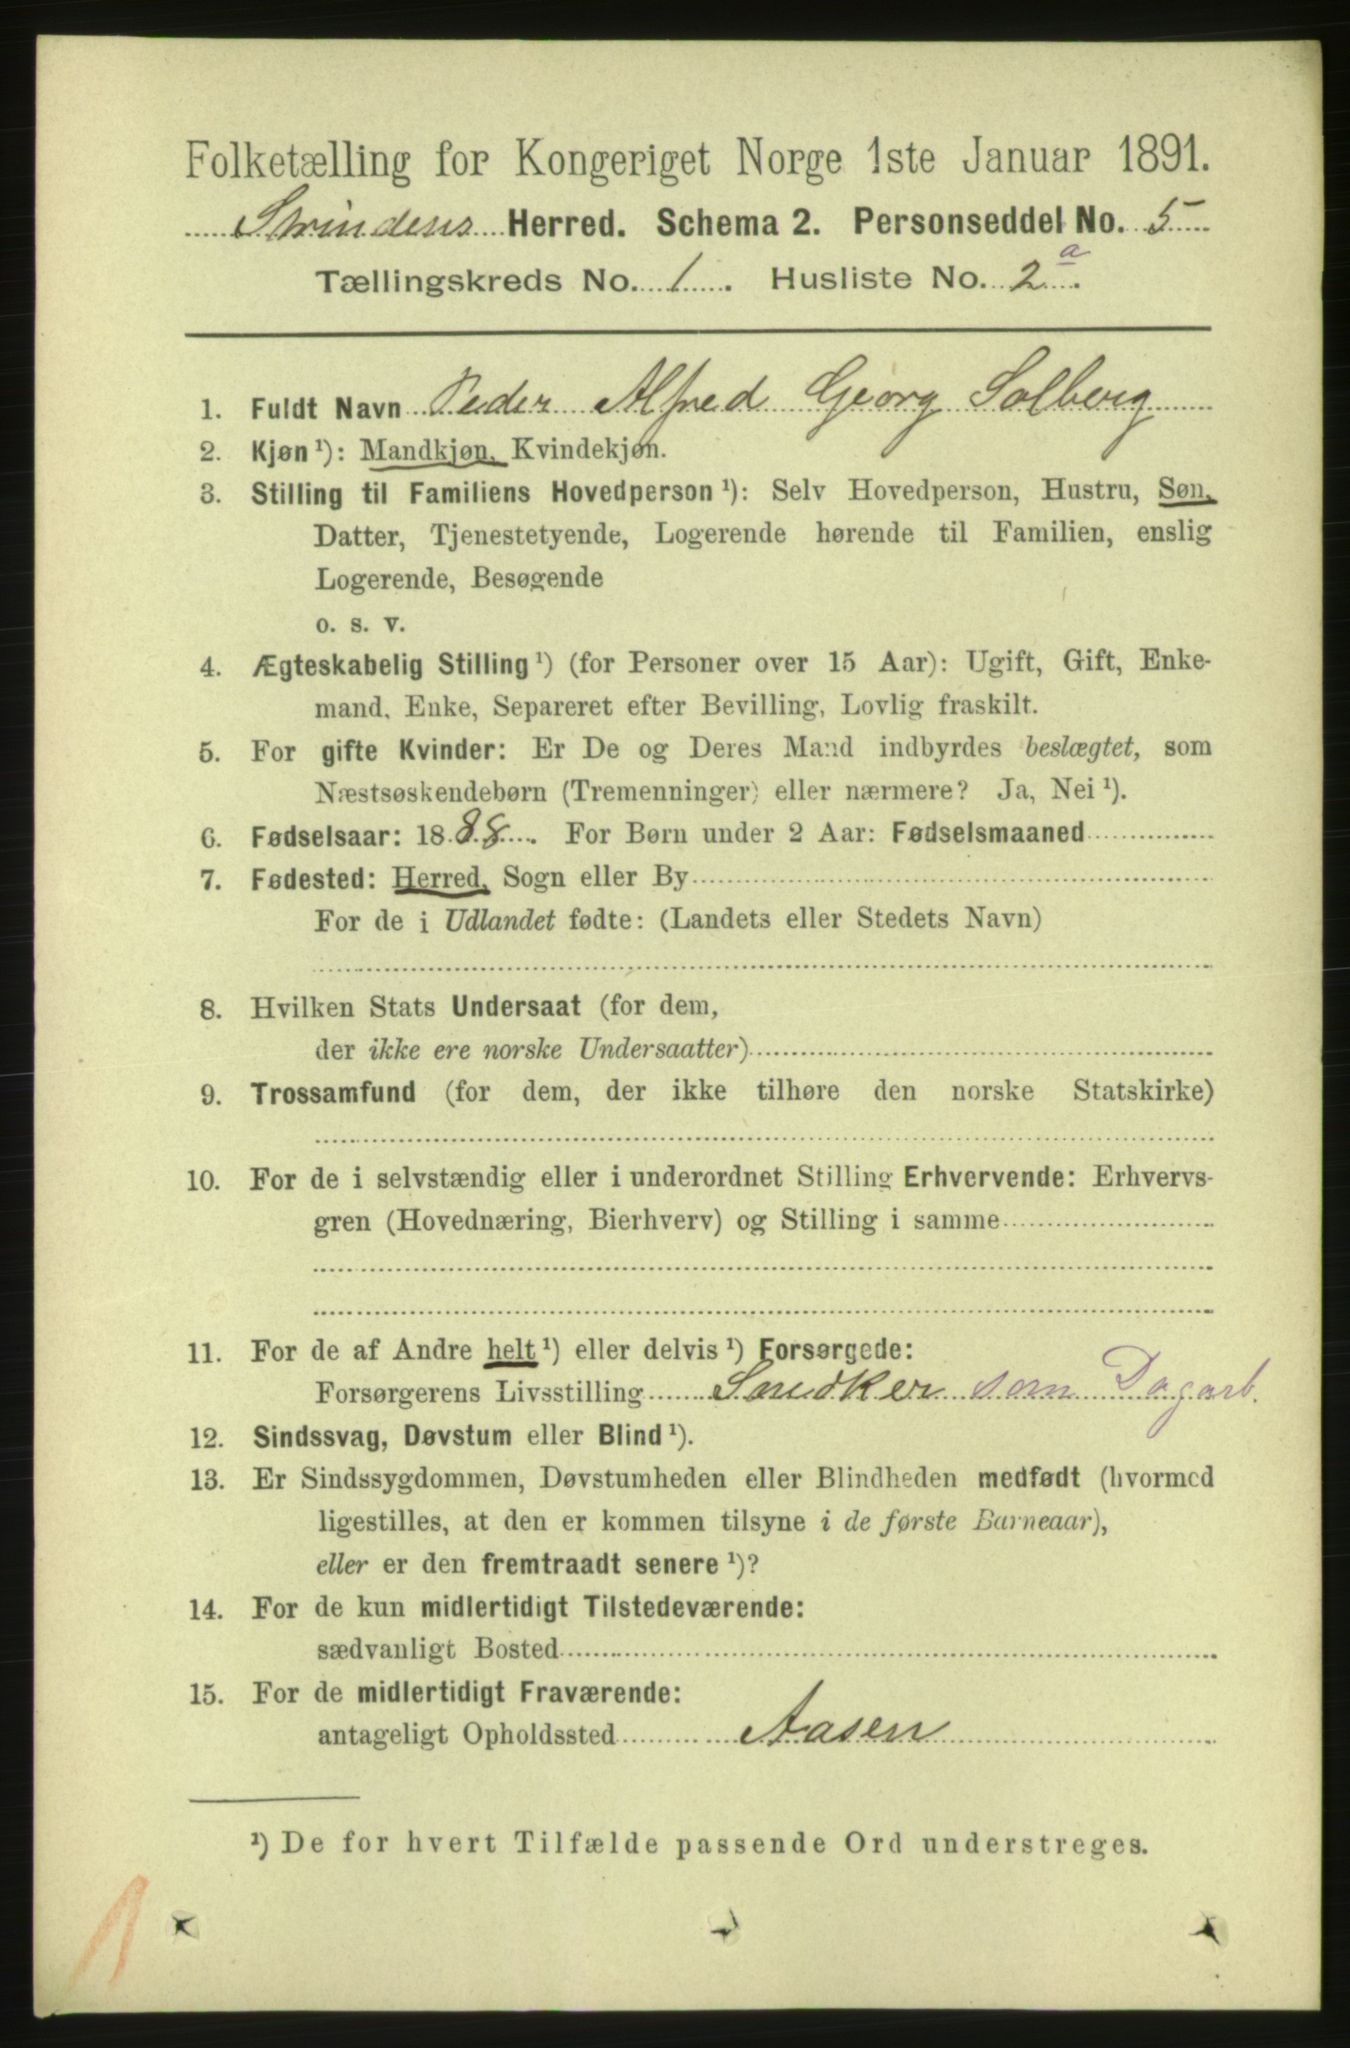 Folketælling for Kongeriget Norge 1ste Januar 1891.
Strindens Herred. Schema 2. Personseddel No. 5
Tællingskreds No. 1. Husliste No. 2 a.
1. Fuldt Navn Peder Alfred Georg Solberg
2. Kjøn ¹): Mandkjøn, Kvindekjøn.
3. Stilling til Familiens Hovedperson ¹): Selv Hovedperson, Hustru, Søn,
Datter, Tjenestetyende, Logerende hørende til Familien, enslig
Logerende, Besøgende
o. s. v.
4. Ægteskabelig Stilling ¹) (for Personer over 15 Aar): Ugift, Gift, Enke-
mand, Enke, Separeret efter Bevilling, Lovlig fraskilt.
5. For gifte Kvinder: Er De og Deres Mand indbyrdes beslægtet, som
Næstsøskendebørn (Tremenninger) eller nærmere? Ja, Nei ¹).
6. Fødselsaar: 1888. For Børn under 2 Aar: Fødselsmaaned
7. Fødested: Herred, Sogn eller By
For de i Udlandet fødte: (Landets eller Stedets Navn)
8. Hvilken Stats Undersaat (for dem,
der ikke ere norske Undersaatter)
9. Trossamfund (for dem, der ikke tilhøre den norske Statskirke)
10. For de i selvstændig eller i underordnet Stilling Erhvervende: Erhvervs-
gren (Hovednæring, Bierhverv) og Stilling i samme
11. For de af Andre helt ¹) eller delvis ¹) Forsørgede:
Forsørgerens Livsstilling Snedker som Dagarb.
12. Sindssvag, Døvstum eller Blind ¹).
13. Er Sindssygdommen, Døvstumheden eller Blindheden medfødt (hvormed
ligestilles, at den er kommen tilsyne i de første Barneaar),
eller er den fremtraadt senere ¹)?
14. For de kun midlertidigt Tilstedeværende:
sædvanligt Bosted
15. For de midlertidigt Fraværende:
antageligt Opholdssted Aasen
¹) De for hvert Tilfælde passende Ord understreges.